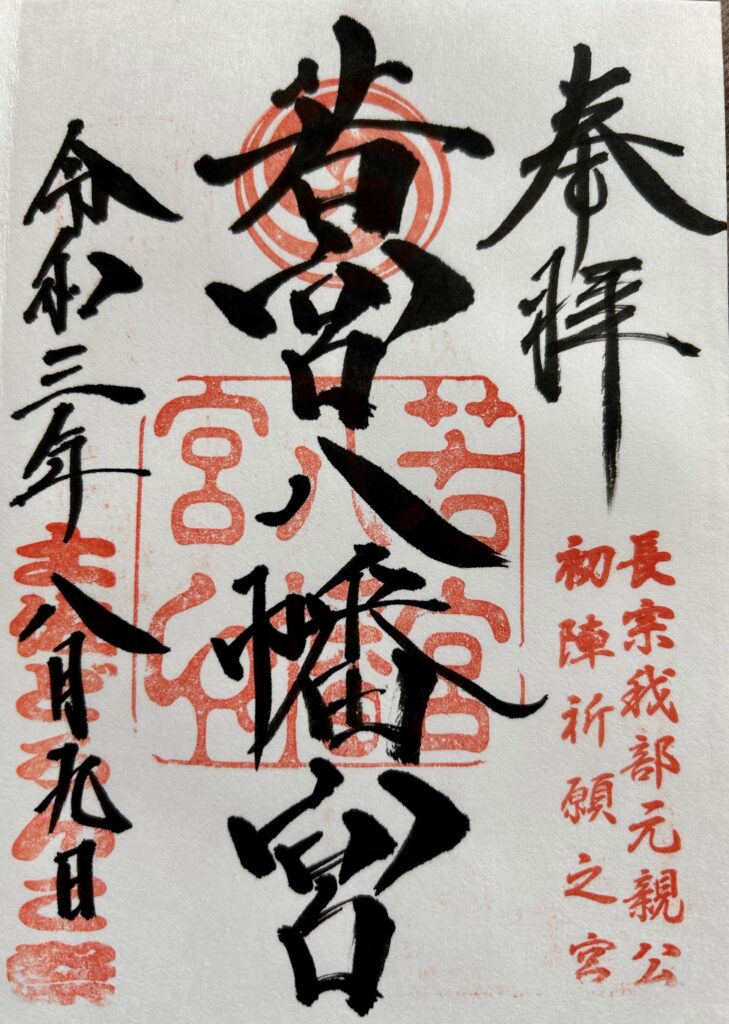 奉拝
長宗我部元親公
初陣祈願之宮
若宮八幡宮
若宮
八幡
宮印
令和三年八月九日